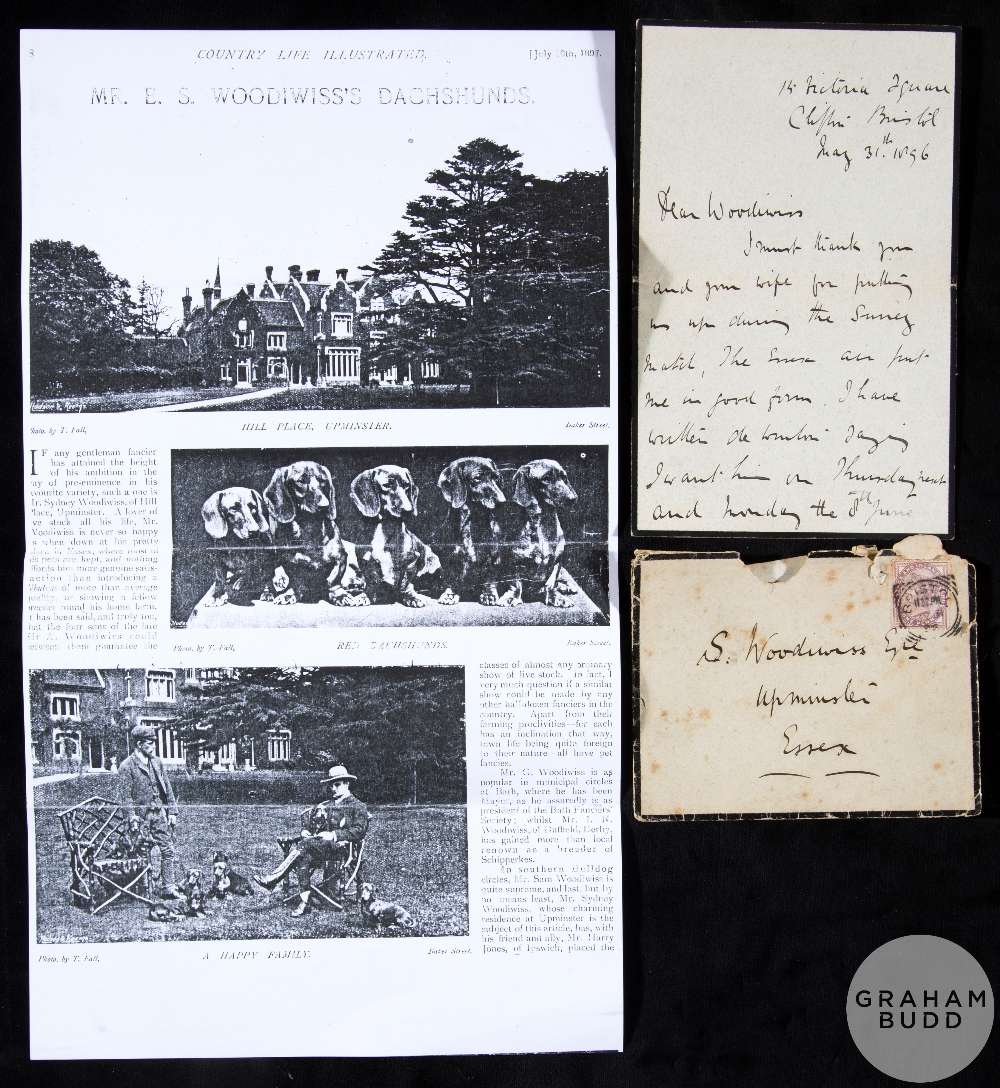 8
COUNTRY LIFE ILLUSTRATED.
[July 10th, 1897.
MR. E. S. WOODIWISS'S DACHSHUNDS.
Photo. by T. Fall,
HILL PLACE, UPMINSTER.
Baker Street.
IF any gentleman fancier
has attained the height
of his ambition in the
way of pre-eminence in his
favourite variety, such a one is
Mr. Sydney Woodiwiss, of Hill
Place, Upminster. A lover of
live stock all his life, Mr.
Woodiwiss is never so happy
as when down at his pretty
place in Essex, where most of
his pets are kept, and nothing
affords him more genuine satis-
faction than introducing a
of more than average
quality, or showing a fellow
round his home farm.
It has been said, and truly too,
that the four sons of the late
Woodiwiss could
between them guarantee the
Photo. by T. Fall,
RED DACHSHUNDS.
Baker Street.
Photo. by T. Fall,
A HAPPY FAMILY.
Baker Street.
classes of almost any ordinary
show of live stock. In fact, I
very much question if a similar
show could be made by any
other half-dozen fanciers in the
country. Apart from their
farming proclivities—for each
has an inclination that way,
town life being quite foreign
to their nature—all have pet
fancies.
Mr. G. Woodiwiss is as
popular in municipal circles
at Bath, where he has been
Mayor, as he assuredly is as
president of the Bath Fanciers'
Society; whilst Mr. I. N.
Woodiwiss, of Duffield, Derby,
has gained more than local
renown as a breeder of
Schipperkes.
In southern Bulldog
circles, Mr. Sam Woodiwiss is
quite supreme, and last, but by
no means least, Mr. Sydney
Woodiwiss, whose charming
residence at Upminster is the
subject of this article, has, with
his friend and ally, Mr. Harry
Jones, of Ipswich, placed the
15 Victoria Square
Clifton Bristol
May 31st. 1896
Dear Woodiwiss
I must thank you
and your wife for putting
us up during the Surrey
match, The Essex air put
me in good form. I have
written de Winton saying
I want him on Thursday next
and Monday the 8th June
S. Woodiwiss Esqre
Upminster
Essex
GRAHAM
BUDD